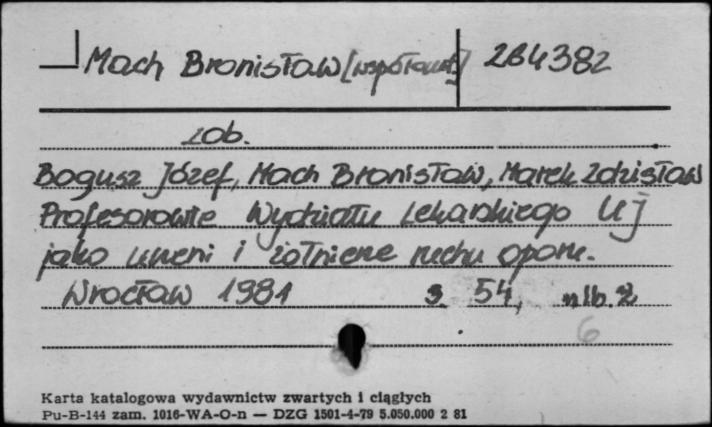 Mach Bronisław [współaut.] 284382
zob.
Bogusz Józef, Mach Bronisław, Marek Zdzisław
Profesorowie Wydziału Lekarskiego UJ
jako uczeni i żołnierze ruchu oporu.
Wrocław 1981 s. 54, nlb. 2
6
Karta katalogowa wydawnictw zwartych i ciągłych
Pu-B-144 zam. 1016-WA-O-n — DZG 1501-4-79 5.050.000 2 81